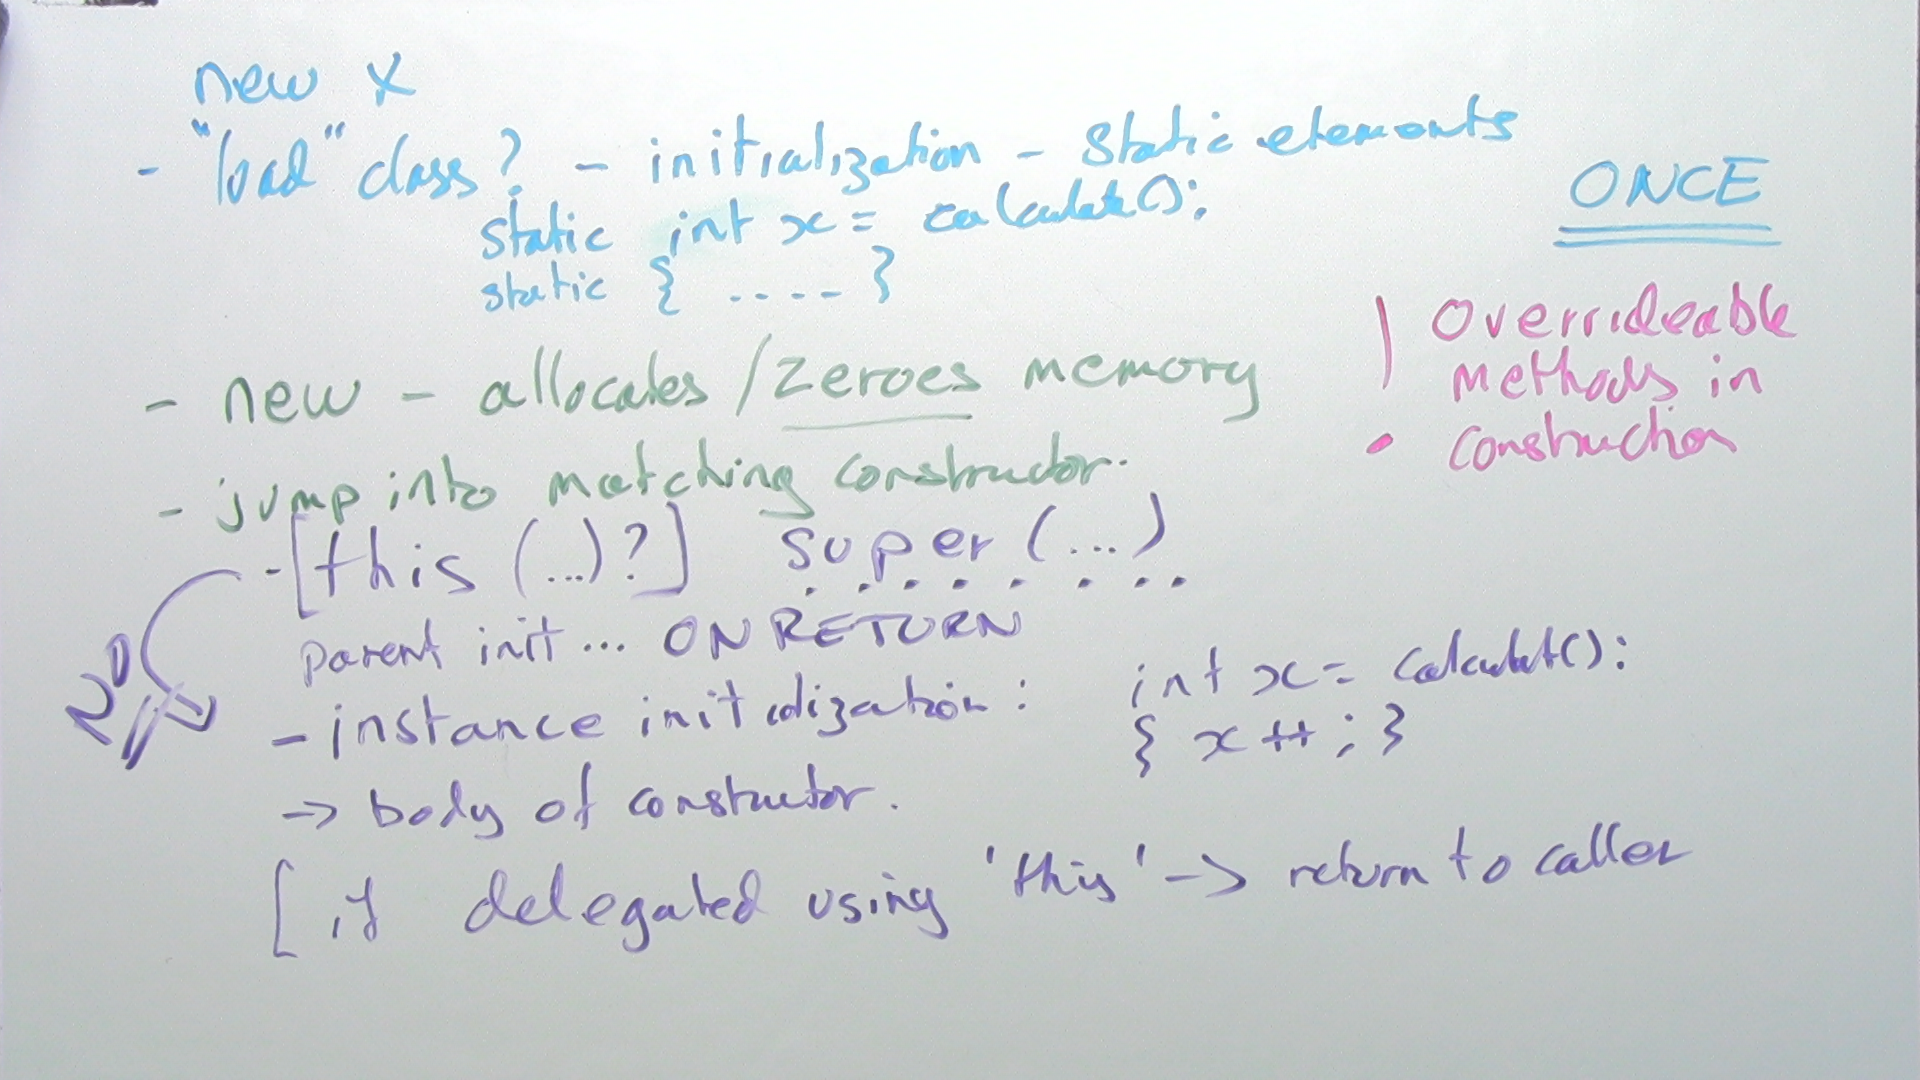 new X
- "load" class? - initialization - static elements
static int x = calculate();
static { .... }
ONCE
! Overrideable
methods in
construction
- new - allocates / zeroes memory
- jump into matching constructor.
- [this (...)?] super (...)
NO
parent init... ON RETURN
- instance initialization: int x = calculate();
{ x++; }
-> body of constructor.
[ if delegated using 'this' -> return to caller